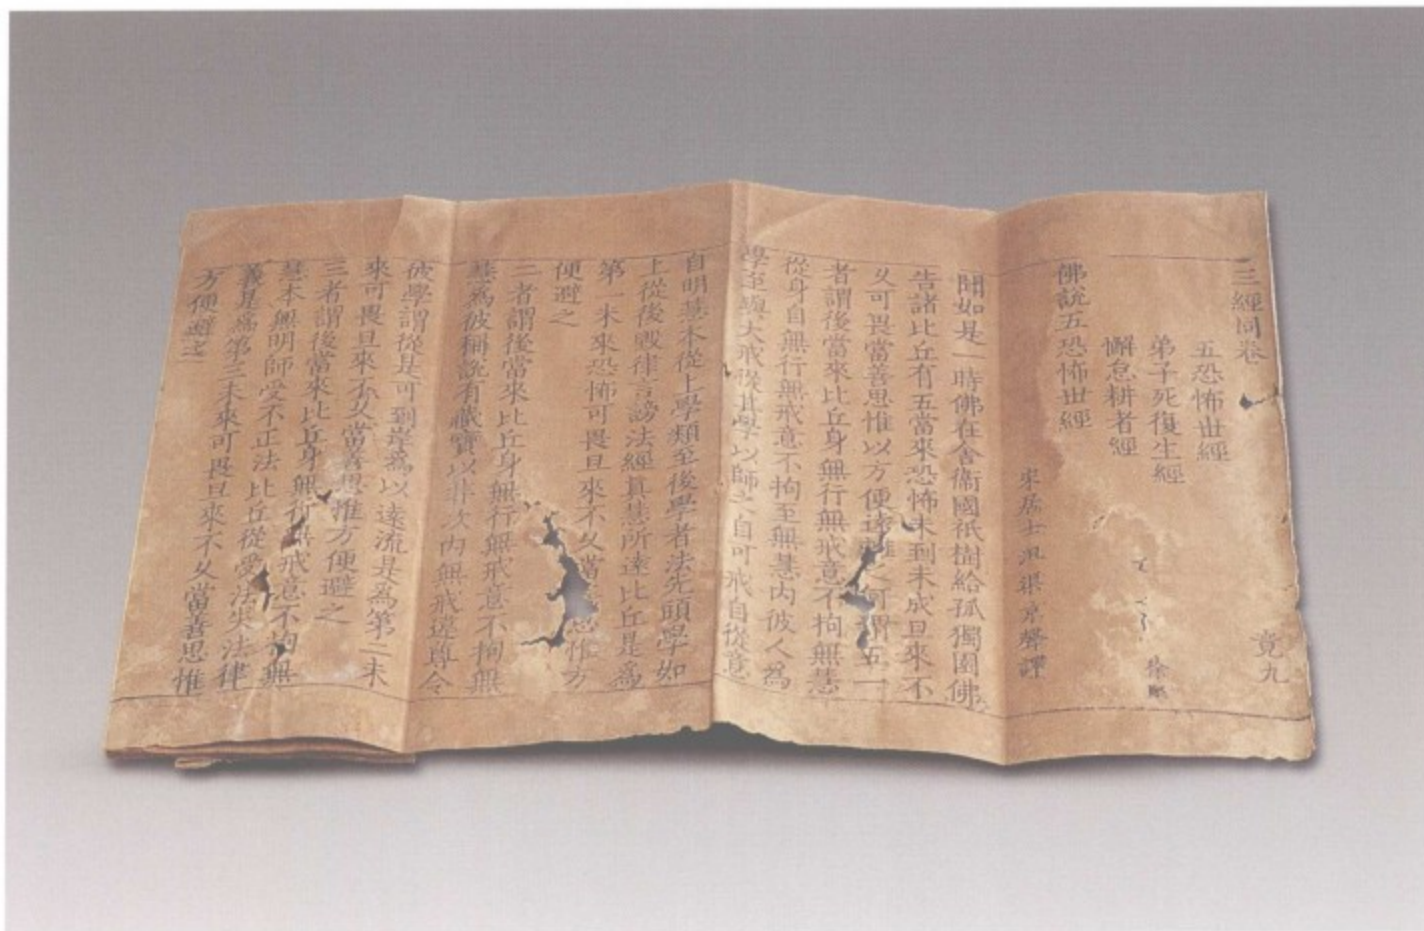 三經同卷
竟九
五恐怖世經
弟子死復生經
懈怠耕者經
佛說五恐怖世經
宋居士沮渠京聲譯
聞如是一時佛在舍衛國祇樹給孤獨園佛
告諸比丘有五當來恐怖未到未成旦來不
久可畏當善思惟以方便遠離之何謂五一
者謂後當來比丘身無行無戒意不拘無慧
從身自無行無戒意不拘至無慧内彼人為
學至與大戒從其學以師之自可戒自從意
自明慧本從上學類至後學者法先頭學如
上從後毀律言謗法經真慧所達比丘是為
第一未來恐怖可畏旦來不久當思惟方
便避之
二者謂後當來比丘身無行無戒意不拘無
慧為彼稱說有藏寶以非次内無戒違尊令
彼學謂從是可到岸為以遠流是為第二未
來可畏旦來不久當善思惟方便避之
三者謂後當來比丘身無行無戒意不拘無
慧本無明師受不正法比丘從受法失法律
義是為第三未來可畏旦來不久當善思惟
方便避之